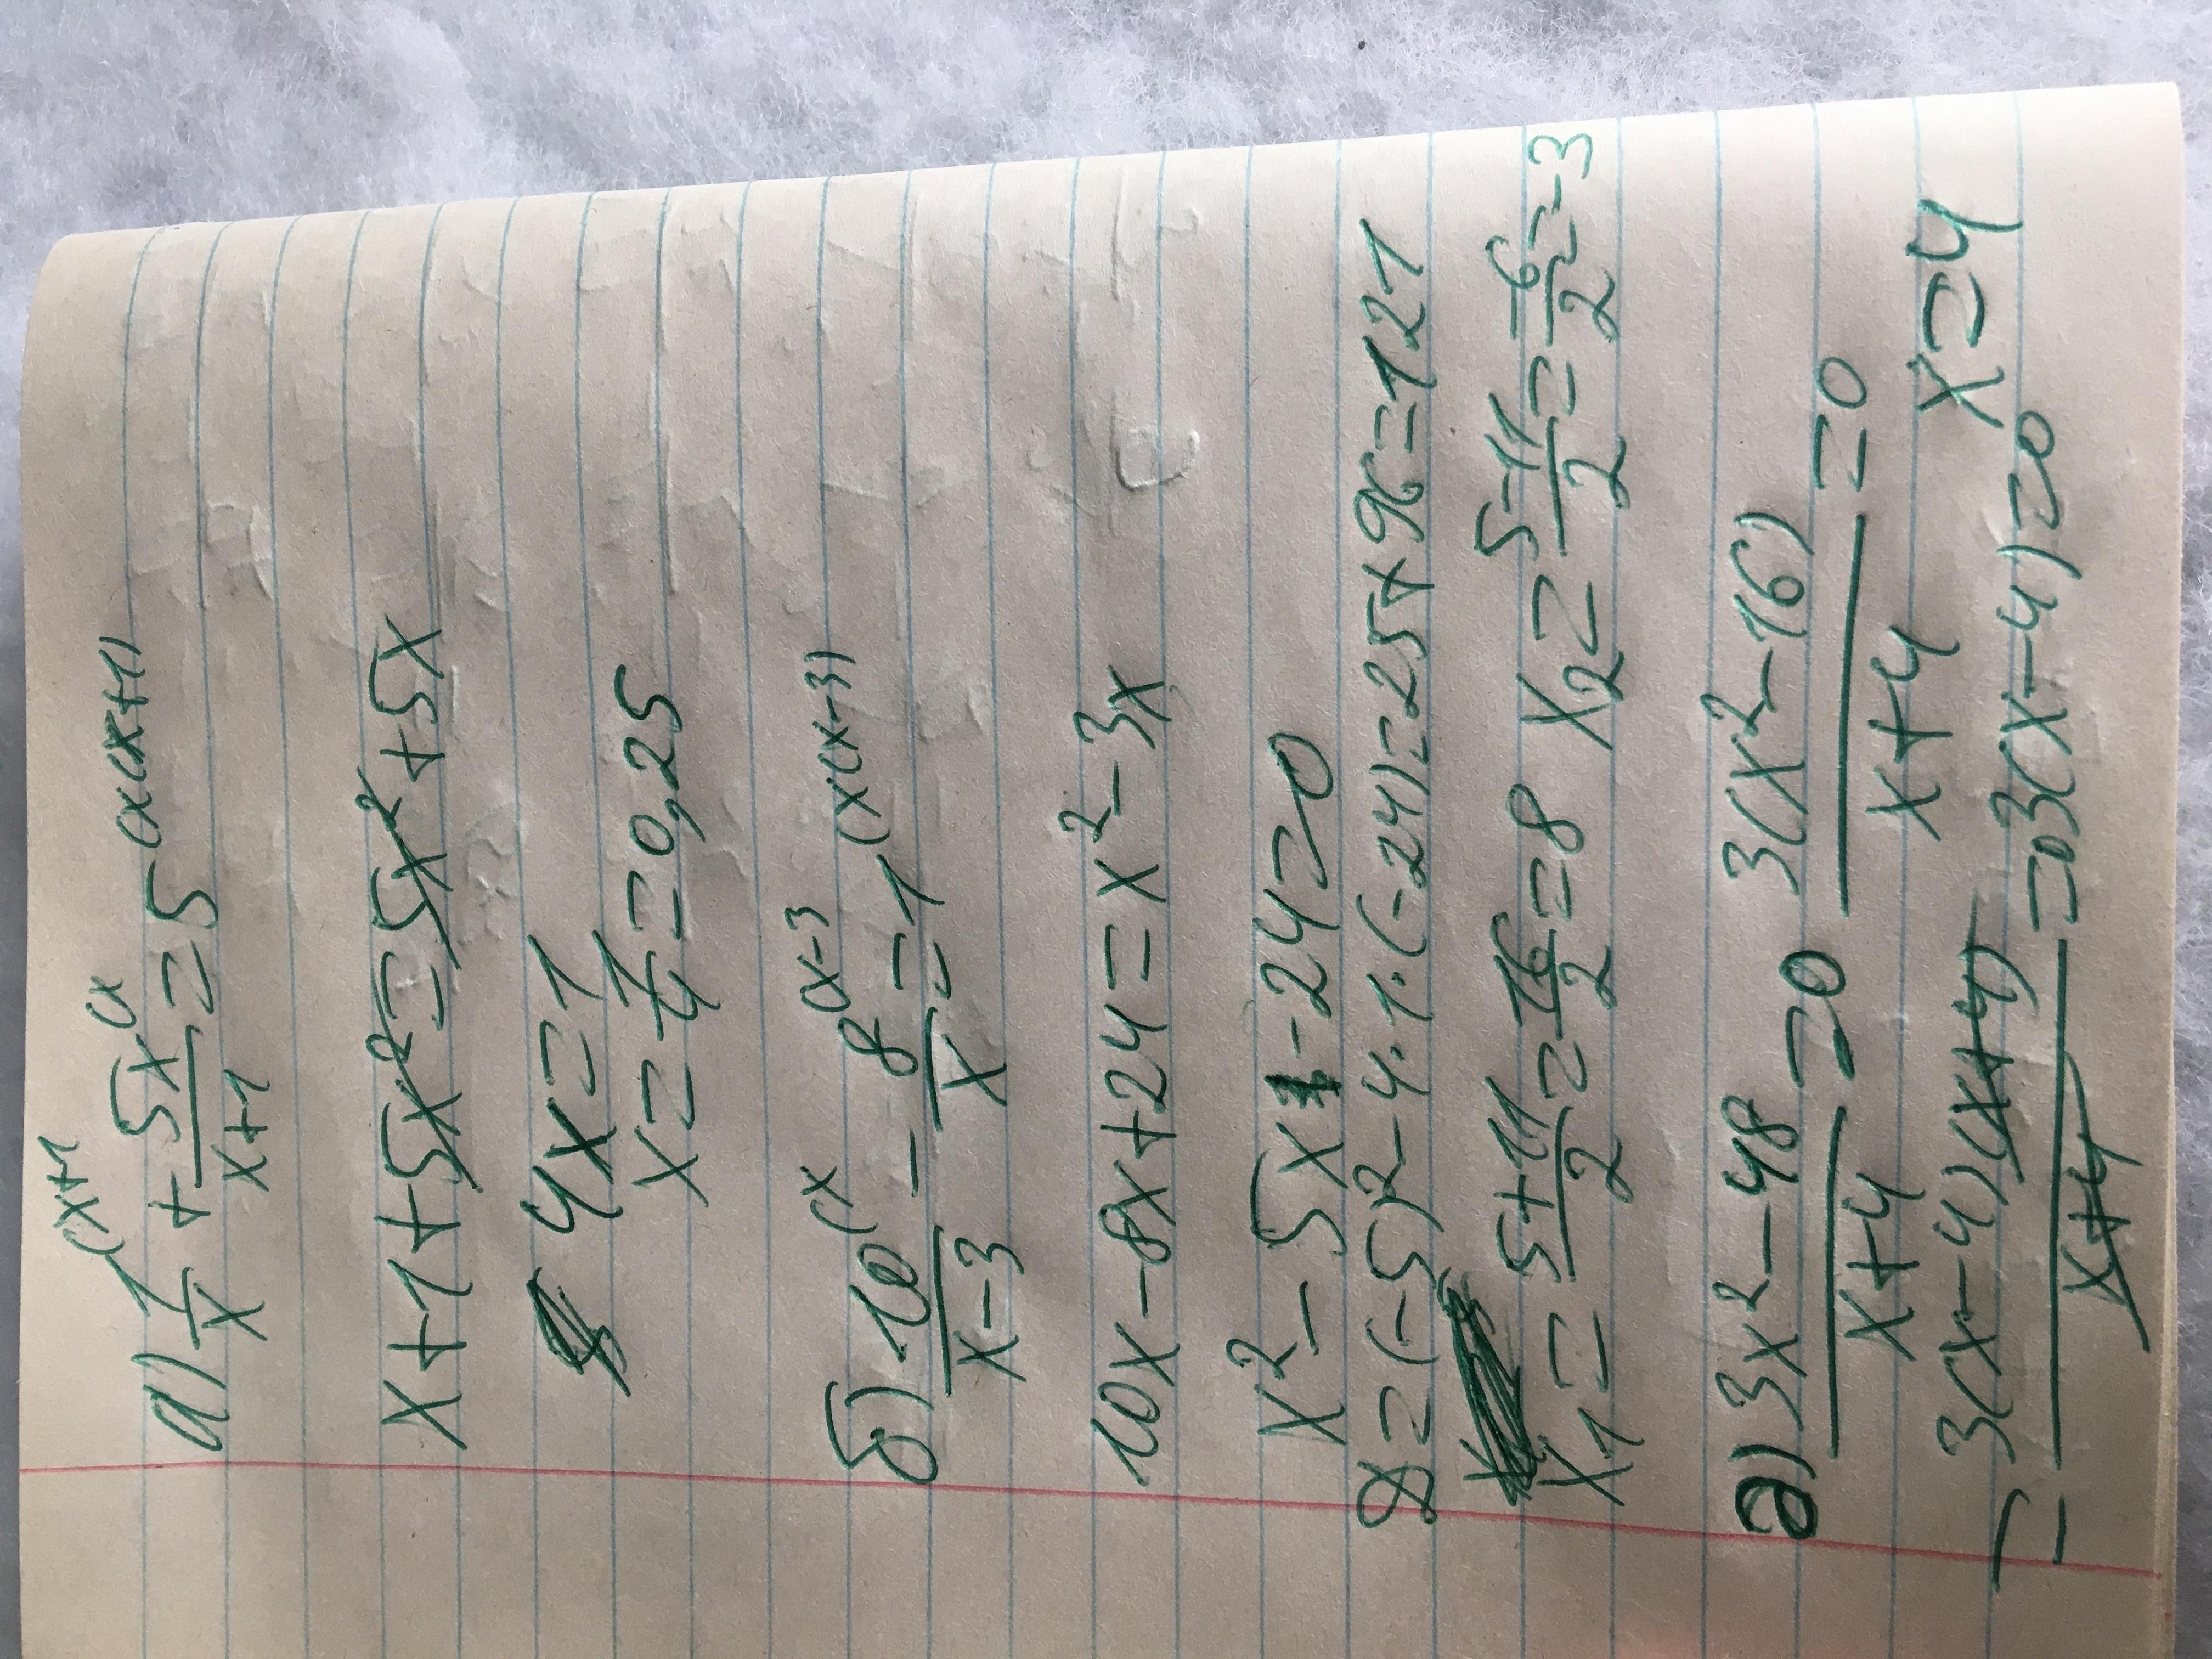 а) 1/x (x+1 + 5x/(x+1) (x = 5 (x(x+1)
x+1+5x²=5x²+5x
4x=1
x=1/4=0,25
б) 10/(x-3) (x - 8/x (x-3 =1 (x(x-3)
10x-8x+24=x²-3x
x²-5x-24=0
D=(-5)²-4·1·(-24)=25+96=121
x₁=(5+11)/2=16/2=8 x₂=(5-11)/2=-6/2=-3
в) (3x²-48)/(x+4)=0 3(x²-16)/(x+4)=0
= 3(x-4)(x+4)/(x+4)=0 3(x-4)=0 x=4